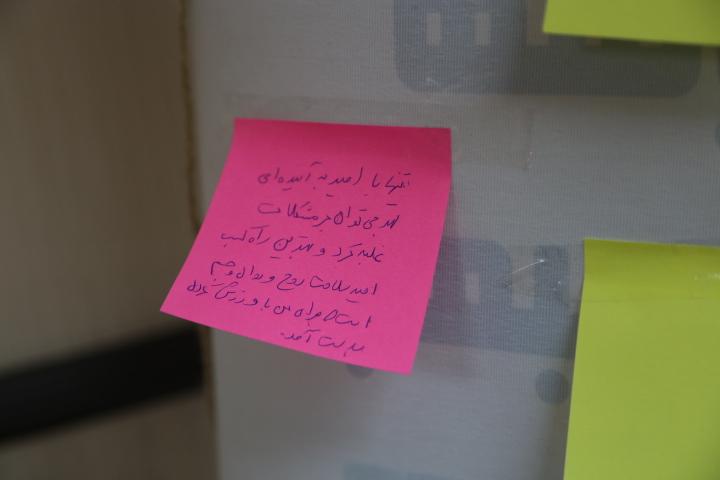 تنها با امید به آینده‌ای
بهتر می‌توان بر مشکلات
غلبه کرد و بهترین راه کسب
امید سلامت روح و روان و جسم
است که برای من با ورزش کردن
بدست آمد.